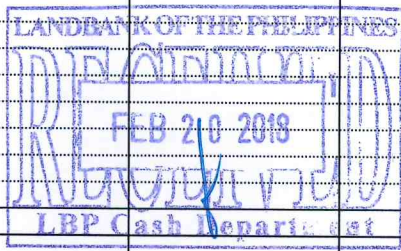 LANDBANK OF THE PHILIPPINES
RECEIVED
FEB 20 2018
LBP Cash Department